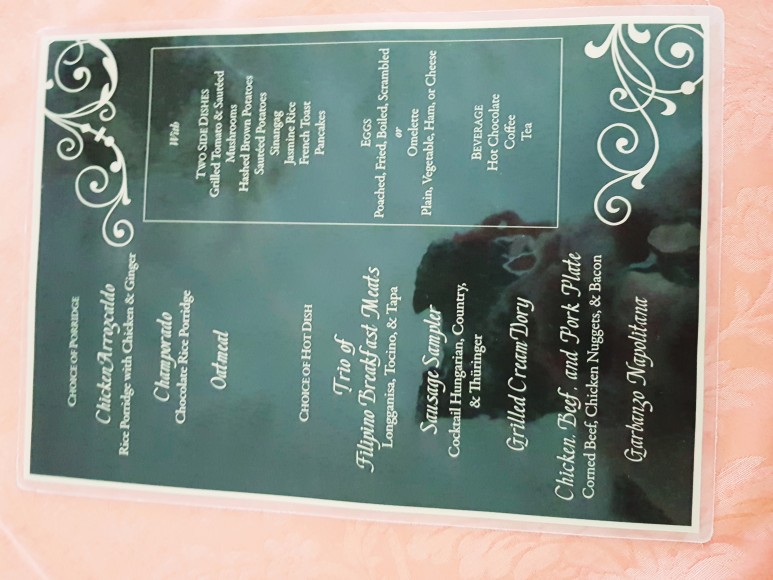 CHOICE OF PORRIDGE
Chicken Arrozcaldo
Rice Porridge with Chicken & Ginger
Champorado
Chocolate Rice Porridge
Oatmeal
CHOICE OF HOT DISH
Trio of
Filipino Breakfast Meats
Longganisa, Tocino, & Tapa
Sausage Sampler
Cocktail Hungarian, Country,
& Thüringer
Grilled Cream Dory
Chicken, Beef, and Pork Plate
Corned Beef, Chicken Nuggets, & Bacon
Garbanzo Napolitana
With
TWO SIDE DISHES
Grilled Tomato & Sautéed
Mushrooms
Hashed Brown Potatoes
Sautéed Potatoes
Sinangag
Jasmine Rice
French Toast
Pancakes
EGGS
Poached, Fried, Boiled, Scrambled
or
Omelette
Plain, Vegetable, Ham, or Cheese
BEVERAGE
Hot Chocolate
Coffee
Tea